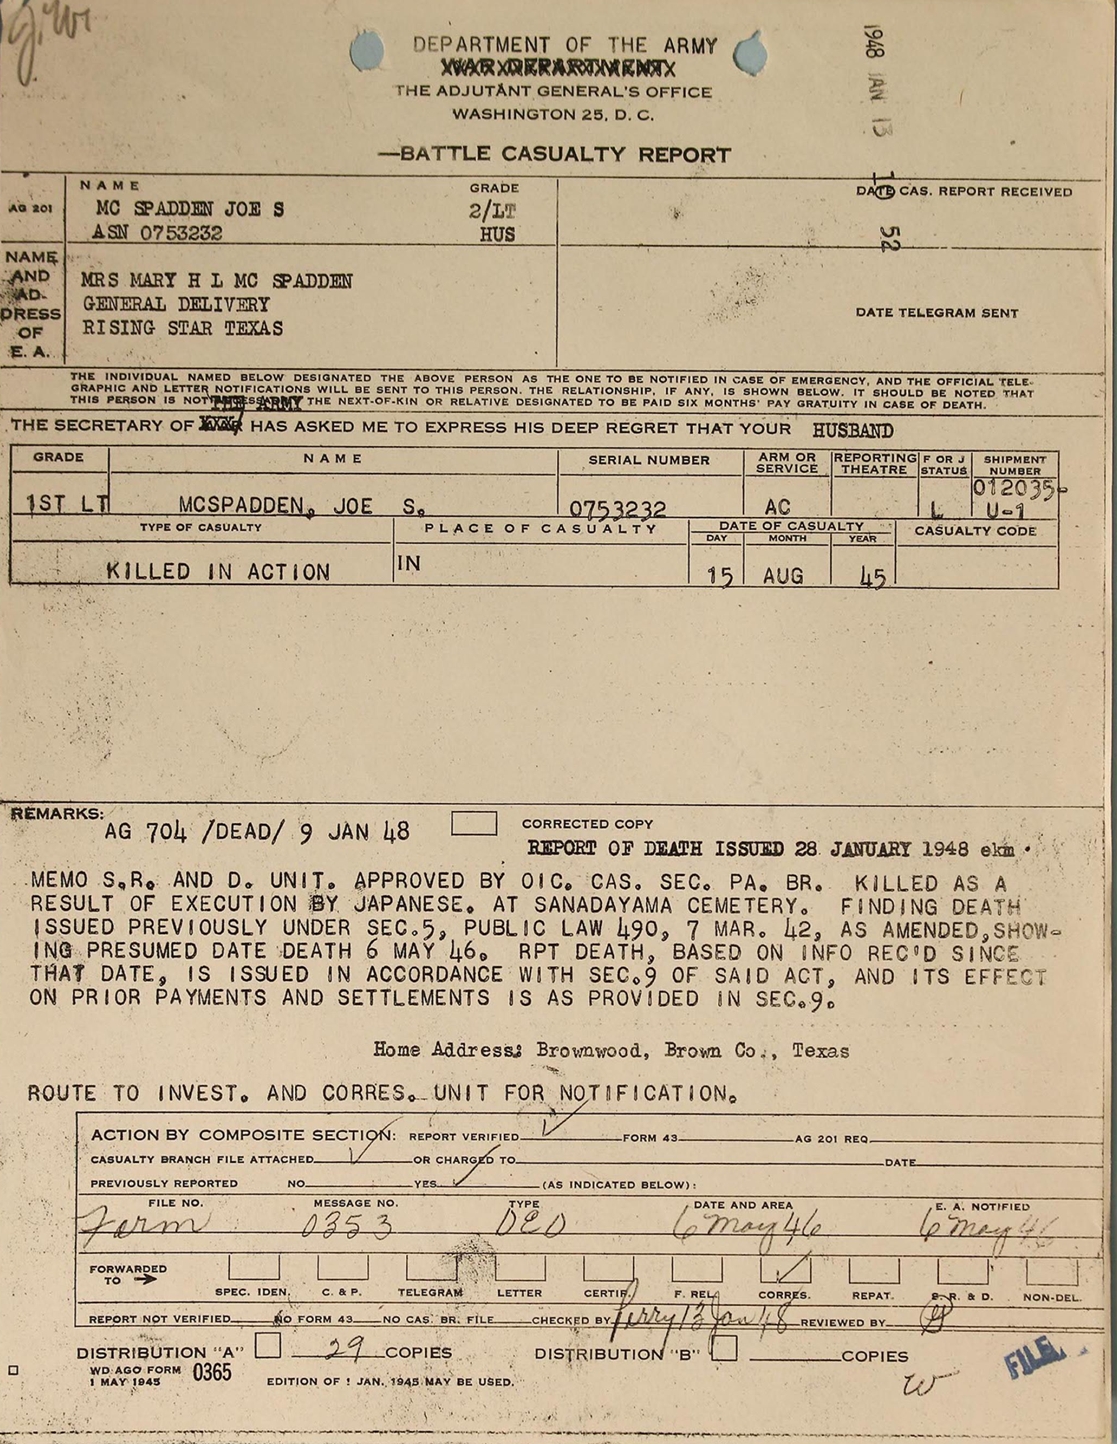 J.W.
DEPARTMENT OF THE ARMY
WAR DEPARTMENT
THE ADJUTANT GENERAL'S OFFICE
WASHINGTON 25, D. C.
1948 JAN 13 10 52
—BATTLE CASUALTY REPORT
AG 201
NAME GRADE
MC SPADDEN JOE S 2/LT
ASN 0753232 HUS
DATE CAS. REPORT RECEIVED
NAME AND AD- DRESS OF E. A.
MRS MARY H L MC SPADDEN
GENERAL DELIVERY
RISING STAR TEXAS
DATE TELEGRAM SENT
THE INDIVIDUAL NAMED BELOW DESIGNATED THE ABOVE PERSON AS THE ONE TO BE NOTIFIED IN CASE OF EMERGENCY, AND THE OFFICIAL TELE-
GRAPHIC AND LETTER NOTIFICATIONS WILL BE SENT TO THIS PERSON. THE RELATIONSHIP, IF ANY, IS SHOWN BELOW. IT SHOULD BE NOTED THAT
THIS PERSON IS NOT NECESSARILY THE NEXT-OF-KIN OR RELATIVE DESIGNATED TO BE PAID SIX MONTHS' PAY GRATUITY IN CASE OF DEATH.
THE ARMY
THE SECRETARY OF HAS ASKED ME TO EXPRESS HIS DEEP REGRET THAT YOUR HUSBAND
GRADE NAME SERIAL NUMBER ARM OR SERVICE REPORTING THEATRE F OR J STATUS SHIPMENT NUMBER
012035-
1ST LT MCSPADDEN, JOE S. 0753232 AC L U-1
TYPE OF CASUALTY PLACE OF CASUALTY DATE OF CASUALTY CASUALTY CODE
DAY MONTH YEAR
KILLED IN ACTION IN 15 AUG 45
REMARKS:
AG 704 /DEAD/ 9 JAN 48 CORRECTED COPY
REPORT OF DEATH ISSUED 28 JANUARY 1948 ekm
MEMO S.R. AND D. UNIT. APPROVED BY OIC. CAS. SEC. PA. BR. KILLED AS A
RESULT OF EXECUTION BY JAPANESE. AT SANADAYAMA CEMETERY. FINDING DEATH
ISSUED PREVIOUSLY UNDER SEC.5, PUBLIC LAW 490, 7 MAR. 42, AS AMENDED,SHOW-
ING PRESUMED DATE DEATH 6 MAY 46. RPT DEATH, BASED ON INFO REC'D SINCE
THAT DATE, IS ISSUED IN ACCORDANCE WITH SEC.9 OF SAID ACT, AND ITS EFFECT
ON PRIOR PAYMENTS AND SETTLEMENTS IS AS PROVIDED IN SEC.9.
Home Address: Brownwood, Brown Co., Texas
ROUTE TO INVEST. AND CORRES. UNIT FOR NOTIFICATION.
ACTION BY COMPOSITE SECTION: REPORT VERIFIED FORM 43 AG 201 REQ.
CASUALTY BRANCH FILE ATTACHED OR CHARGED TO DATE
PREVIOUSLY REPORTED NO YES (AS INDICATED BELOW):
FILE NO. MESSAGE NO. TYPE DATE AND AREA E. A. NOTIFIED
Form 0353 DED 6 May 46 6 May 46
FORWARDED TO →
SPEC. IDEN. C. & P. TELEGRAM LETTER CERTIF. F. REL. CORRES. REPAT. S. R. & D. NON-DEL.
REPORT NOT VERIFIED NO FORM 43 NO CAS. BR. FILE CHECKED BY Perry 13 Jan 48 REVIEWED BY
DISTRIBUTION "A" 29 COPIES DISTRIBUTION "B" COPIES
WD AGO FORM 0365
1 MAY 1945
EDITION OF 1 JAN. 1945 MAY BE USED.
FILE
W